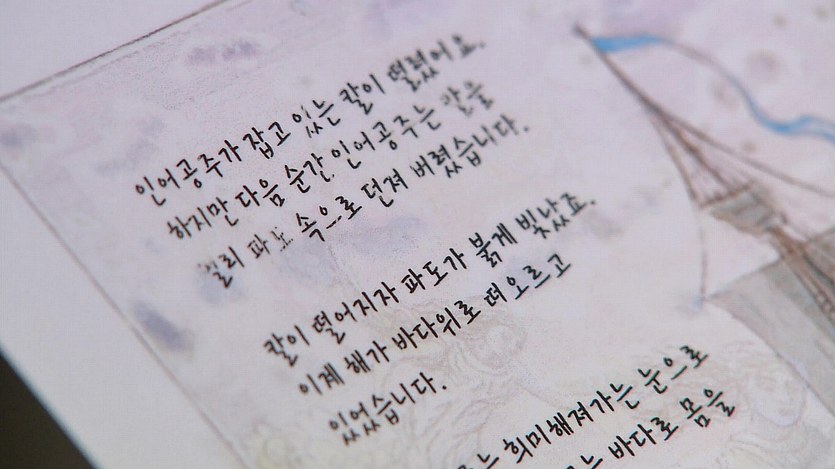 인어공주가 잡고 있는 칼이 떨렸어요.
하지만 다음 순간, 인어공주는 칼을
멀리 파도 속으로 던져 버렸습니다.
칼이 떨어지자 파도가 붉게 빛났죠.
이제 해가 바다위로 떠오르고
있었습니다.
희미해져가는 눈으로
바다로 몸을